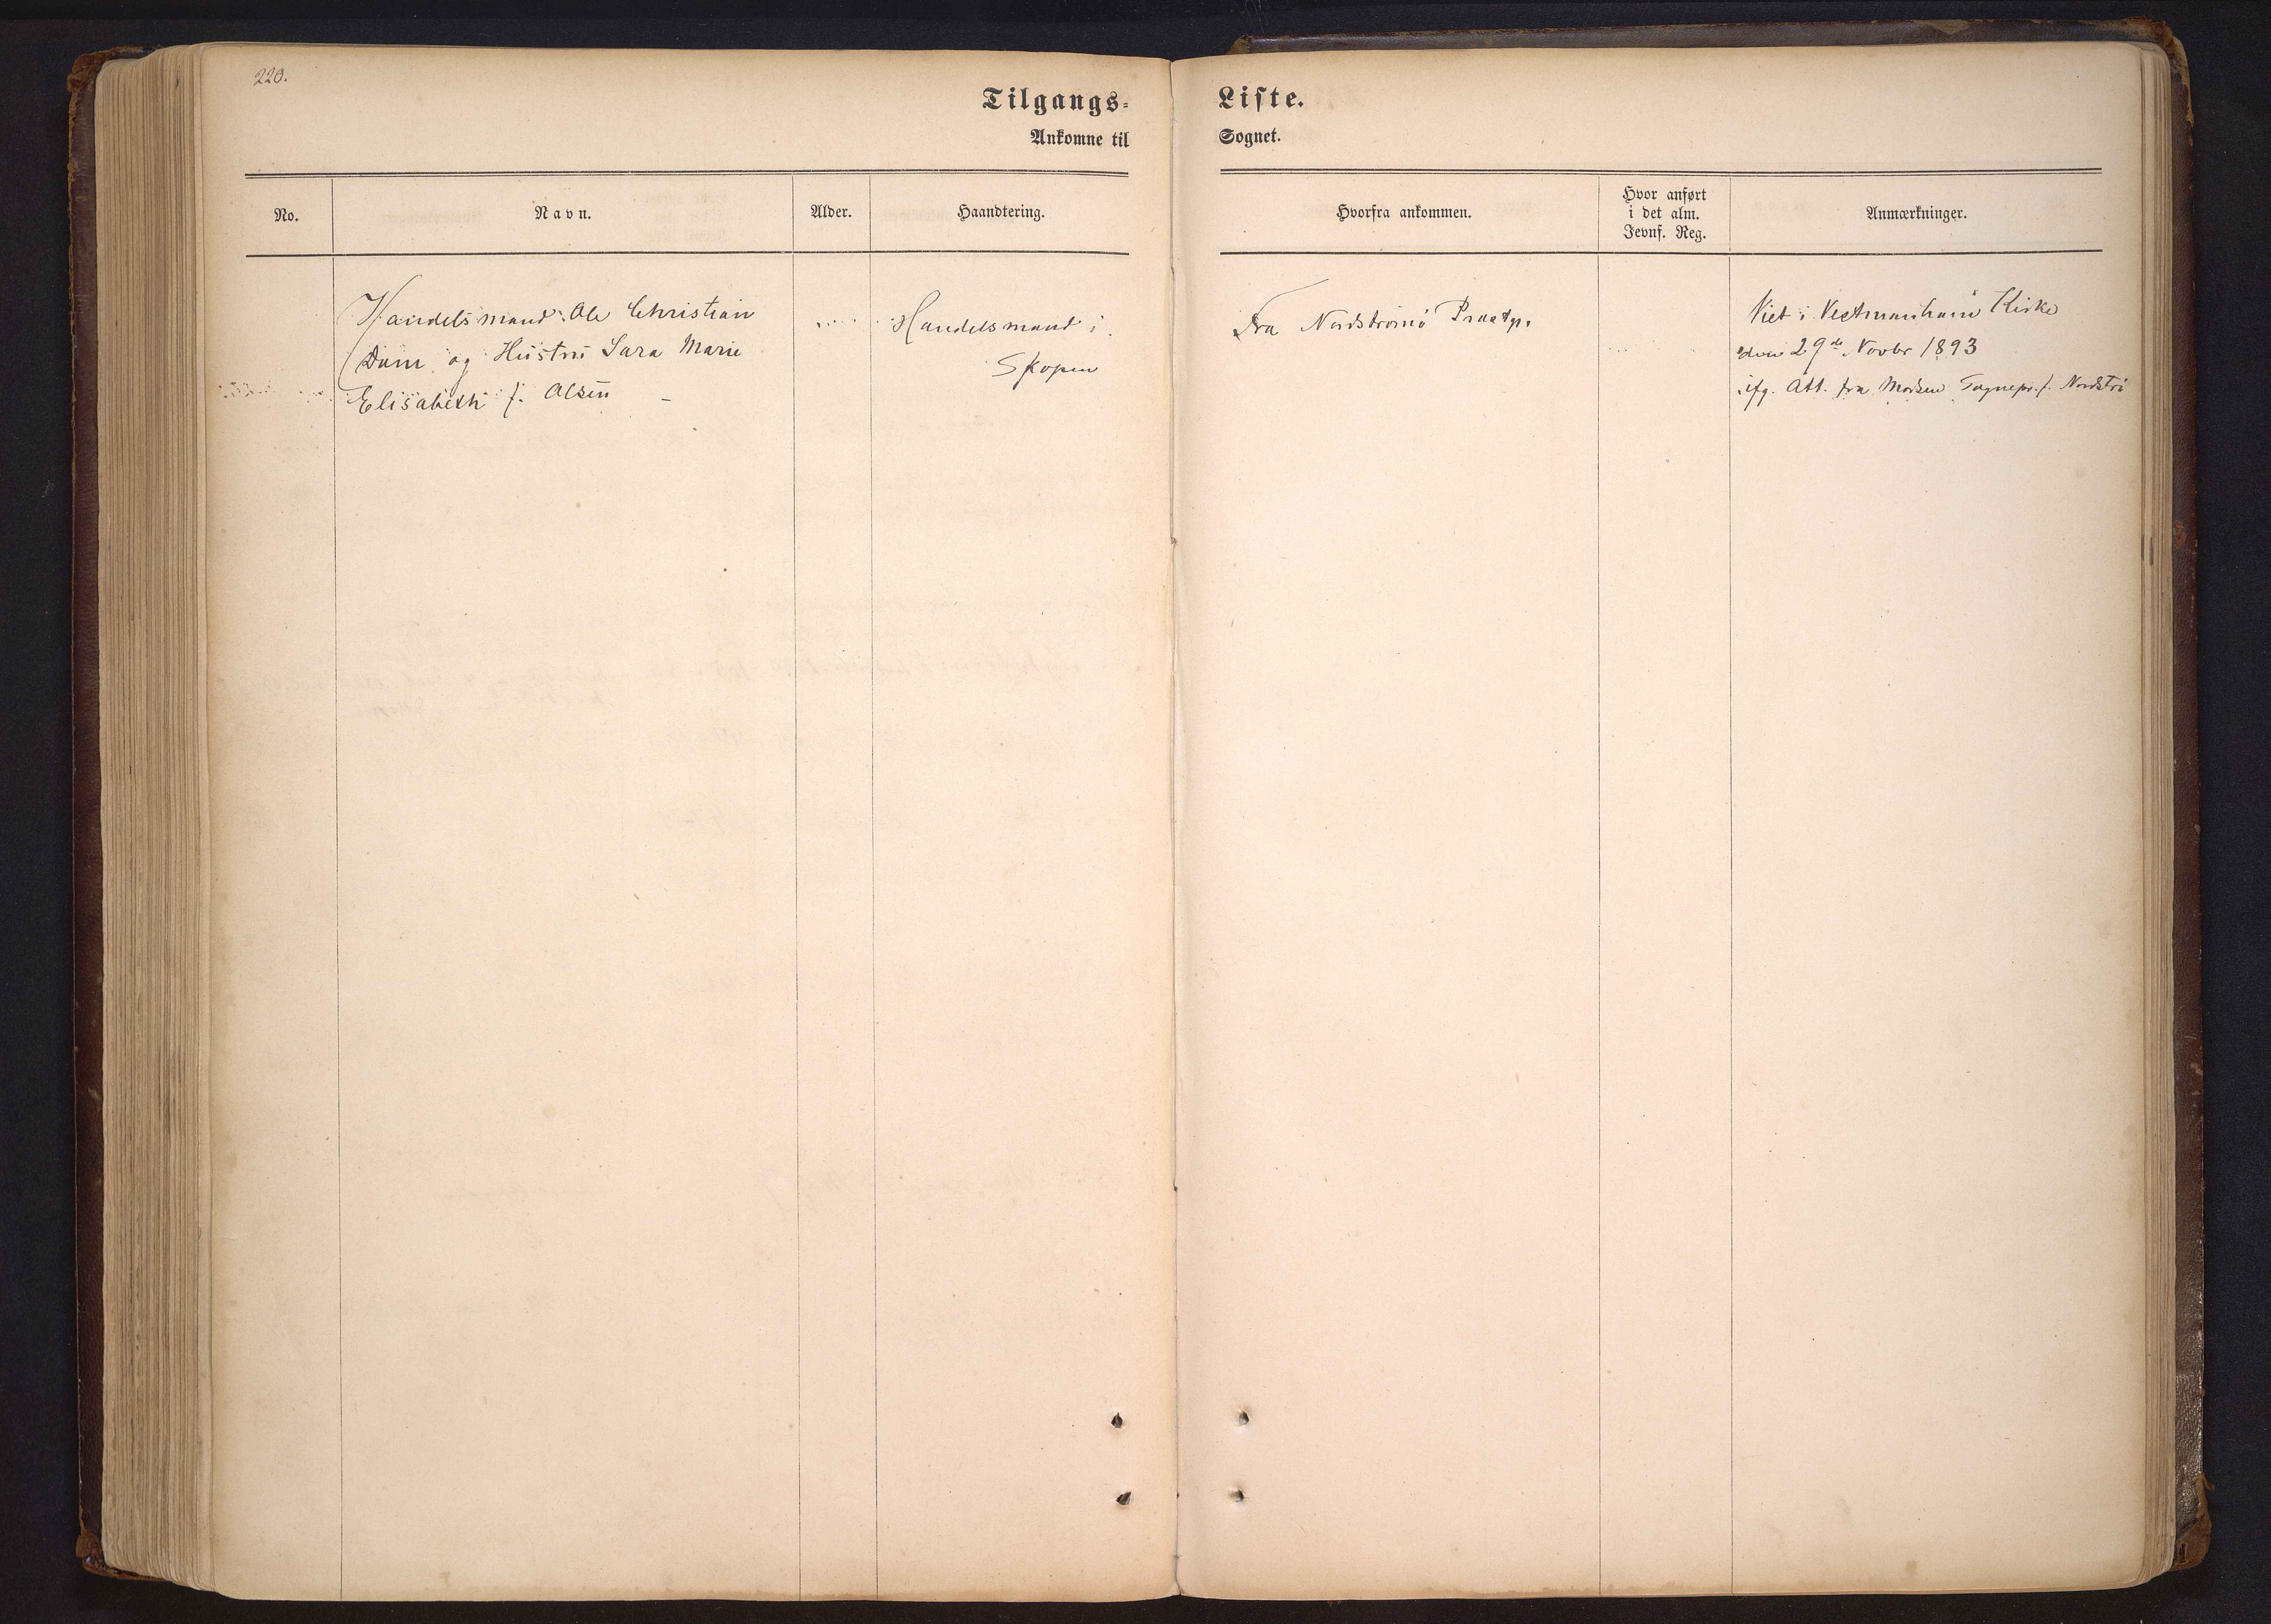 220.
Tilgangs-Liste.
Ankomne til Sognet.
No. Navn. Alder. Haandtering. Hvorfra ankommen. Hvor anført i det alm. Jevnf. Reg. Anmærkninger.
Handelsmand Ole Christian
Dam og Hustru Sara Marie
Elisabeth f. Olsen
Handelsmand i
Skopen
Fra Nordstrømø Præstgj.
Viet i Vestmanhavn Kirke
den 29de Novbr 1893
ifg. Att. fra Sognepr. f. Nordstrø